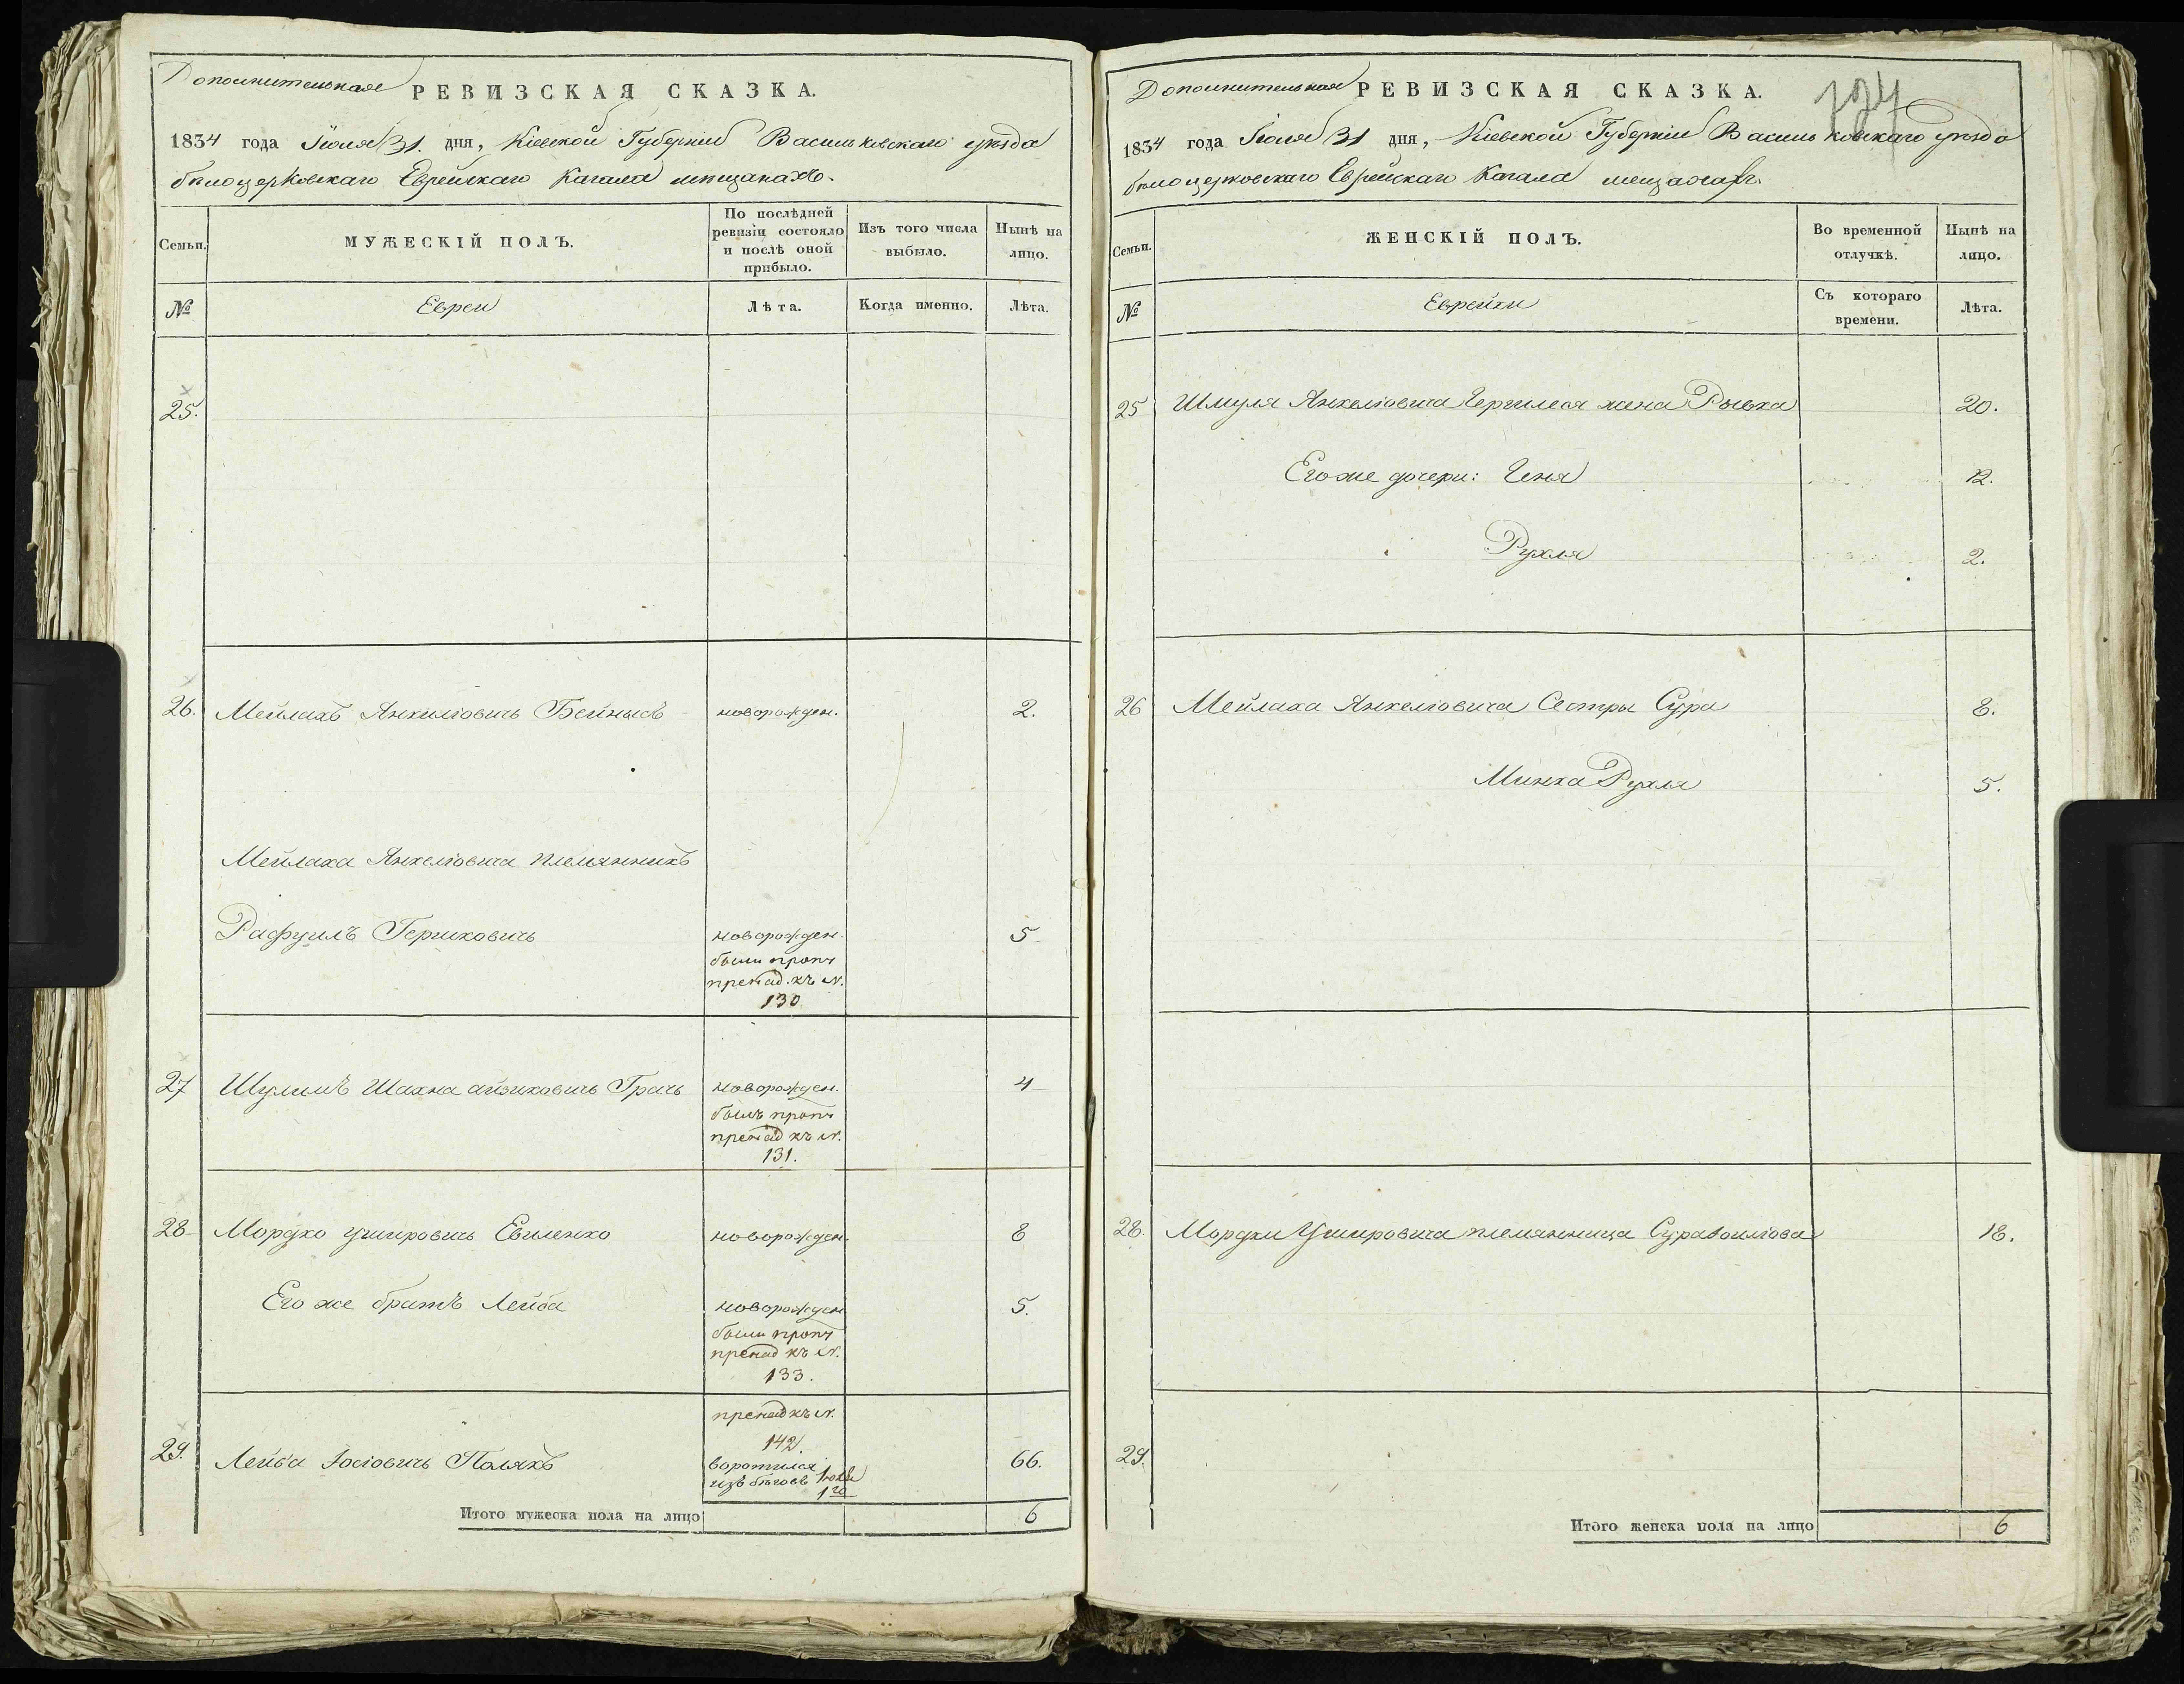 Дополнительная РЕВИЗСКАЯ СКАЗКА.
1834 года Іюля 31. дня, Кіевской Губерніи Васильковскаго уѣзда
бѣлоцерковскаго Еврейскаго Кагала мѣщанахъ.
Семьи.
МУЖЕСКІЙ ПОЛЪ.
По послѣдней ревизіи состояло и послѣ оной прибыло.
Изъ того числа выбыло.
Нынѣ на лицо.
№
Евреи
Лѣта.
Когда именно.
Лѣта.
25.
26. Мейлахъ Янкиліовичь Бейнысъ новорожден. 2.
Мейлаха Янкеліовича племянникъ
Рафуилъ Гершковичь новорожден. 5
были проп
пренад. къ N.
130
27 Шулимъ Шахна айзиковичь Грачь новорожден. 4
былъ проп
пренад къ N.
131.
28 Мордко ушировичь Евиленко новорожден. 8
Его же братъ Лейба новорожден 5.
были проп
пренад къ N.
133.
пренад къ N.
142.
29. Лейба Іосіовичь Полякъ воротился 66.
изъ бѣговъ
Итого мужеска пола на лицо 6
Дополнительная РЕВИЗСКАЯ СКАЗКА.
1834 года Іюля 31 дня, Кіевской Губерніи Васильковскаго уѣзда
бѣлоцерковскаго Еврейскаго Кагала мещанахъ.
Семьи.
ЖЕНСКІЙ ПОЛЪ.
Во временной отлучкѣ.
Нынѣ на лицо.
№
Еврейки
Съ котораго времени.
Лѣта.
25 Шмуля Янкеліовича жена Рывка 20.
Его же дочери: Геня 12.
Рухля 2.
26 Мейлаха Янкеліовича Сестры Сура 8.
Минка Рухля 5.
28. Мордки Ушировича племянница Сура 18.
29.
Итого женска пола на лицо 6